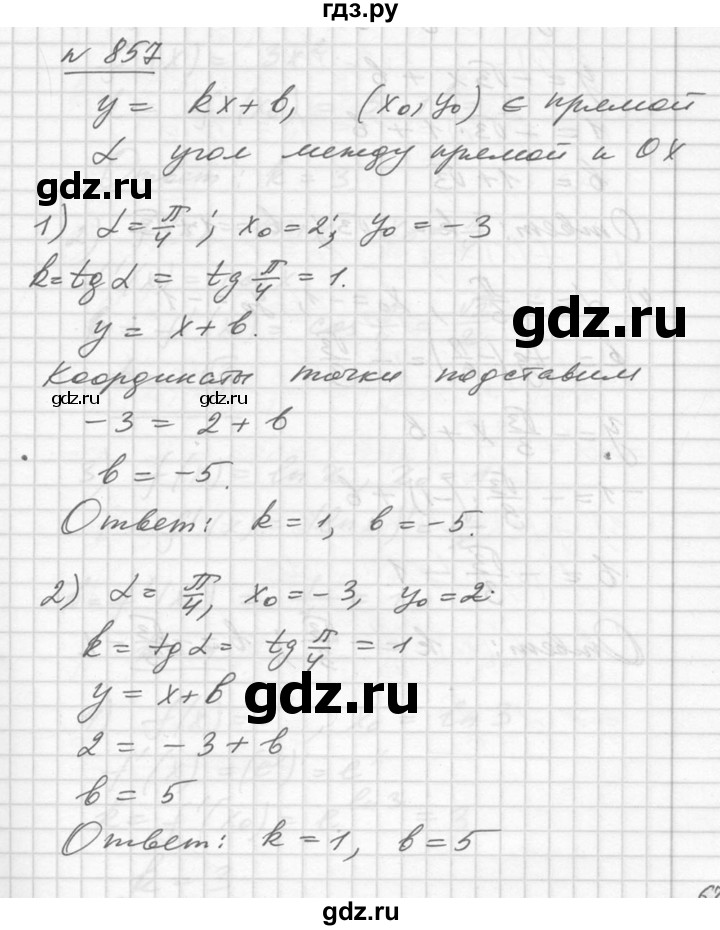 гдз.ру
№ 857
y = kx + b, (x₀, y₀) ∈ прямой
α угол между прямой и OX
gdz.ru
1) α = π/4; x₀ = 2; y₀ = -3
k = tg α = tg π/4 = 1.
gdz.ru
y = x + b.
Координаты точки подставим
gdz.ru gdz.ru
-3 = 2 + b
b = -5.
Ответ: k = 1, b = -5.
2) α = π/4, x₀ = -3, y₀ = 2.
k = tg α = tg π/4 = 1
y = x + b
gdz.ru
2 = -3 + b
b = 5
Ответ: k = 1, b = 5
gdz.ru